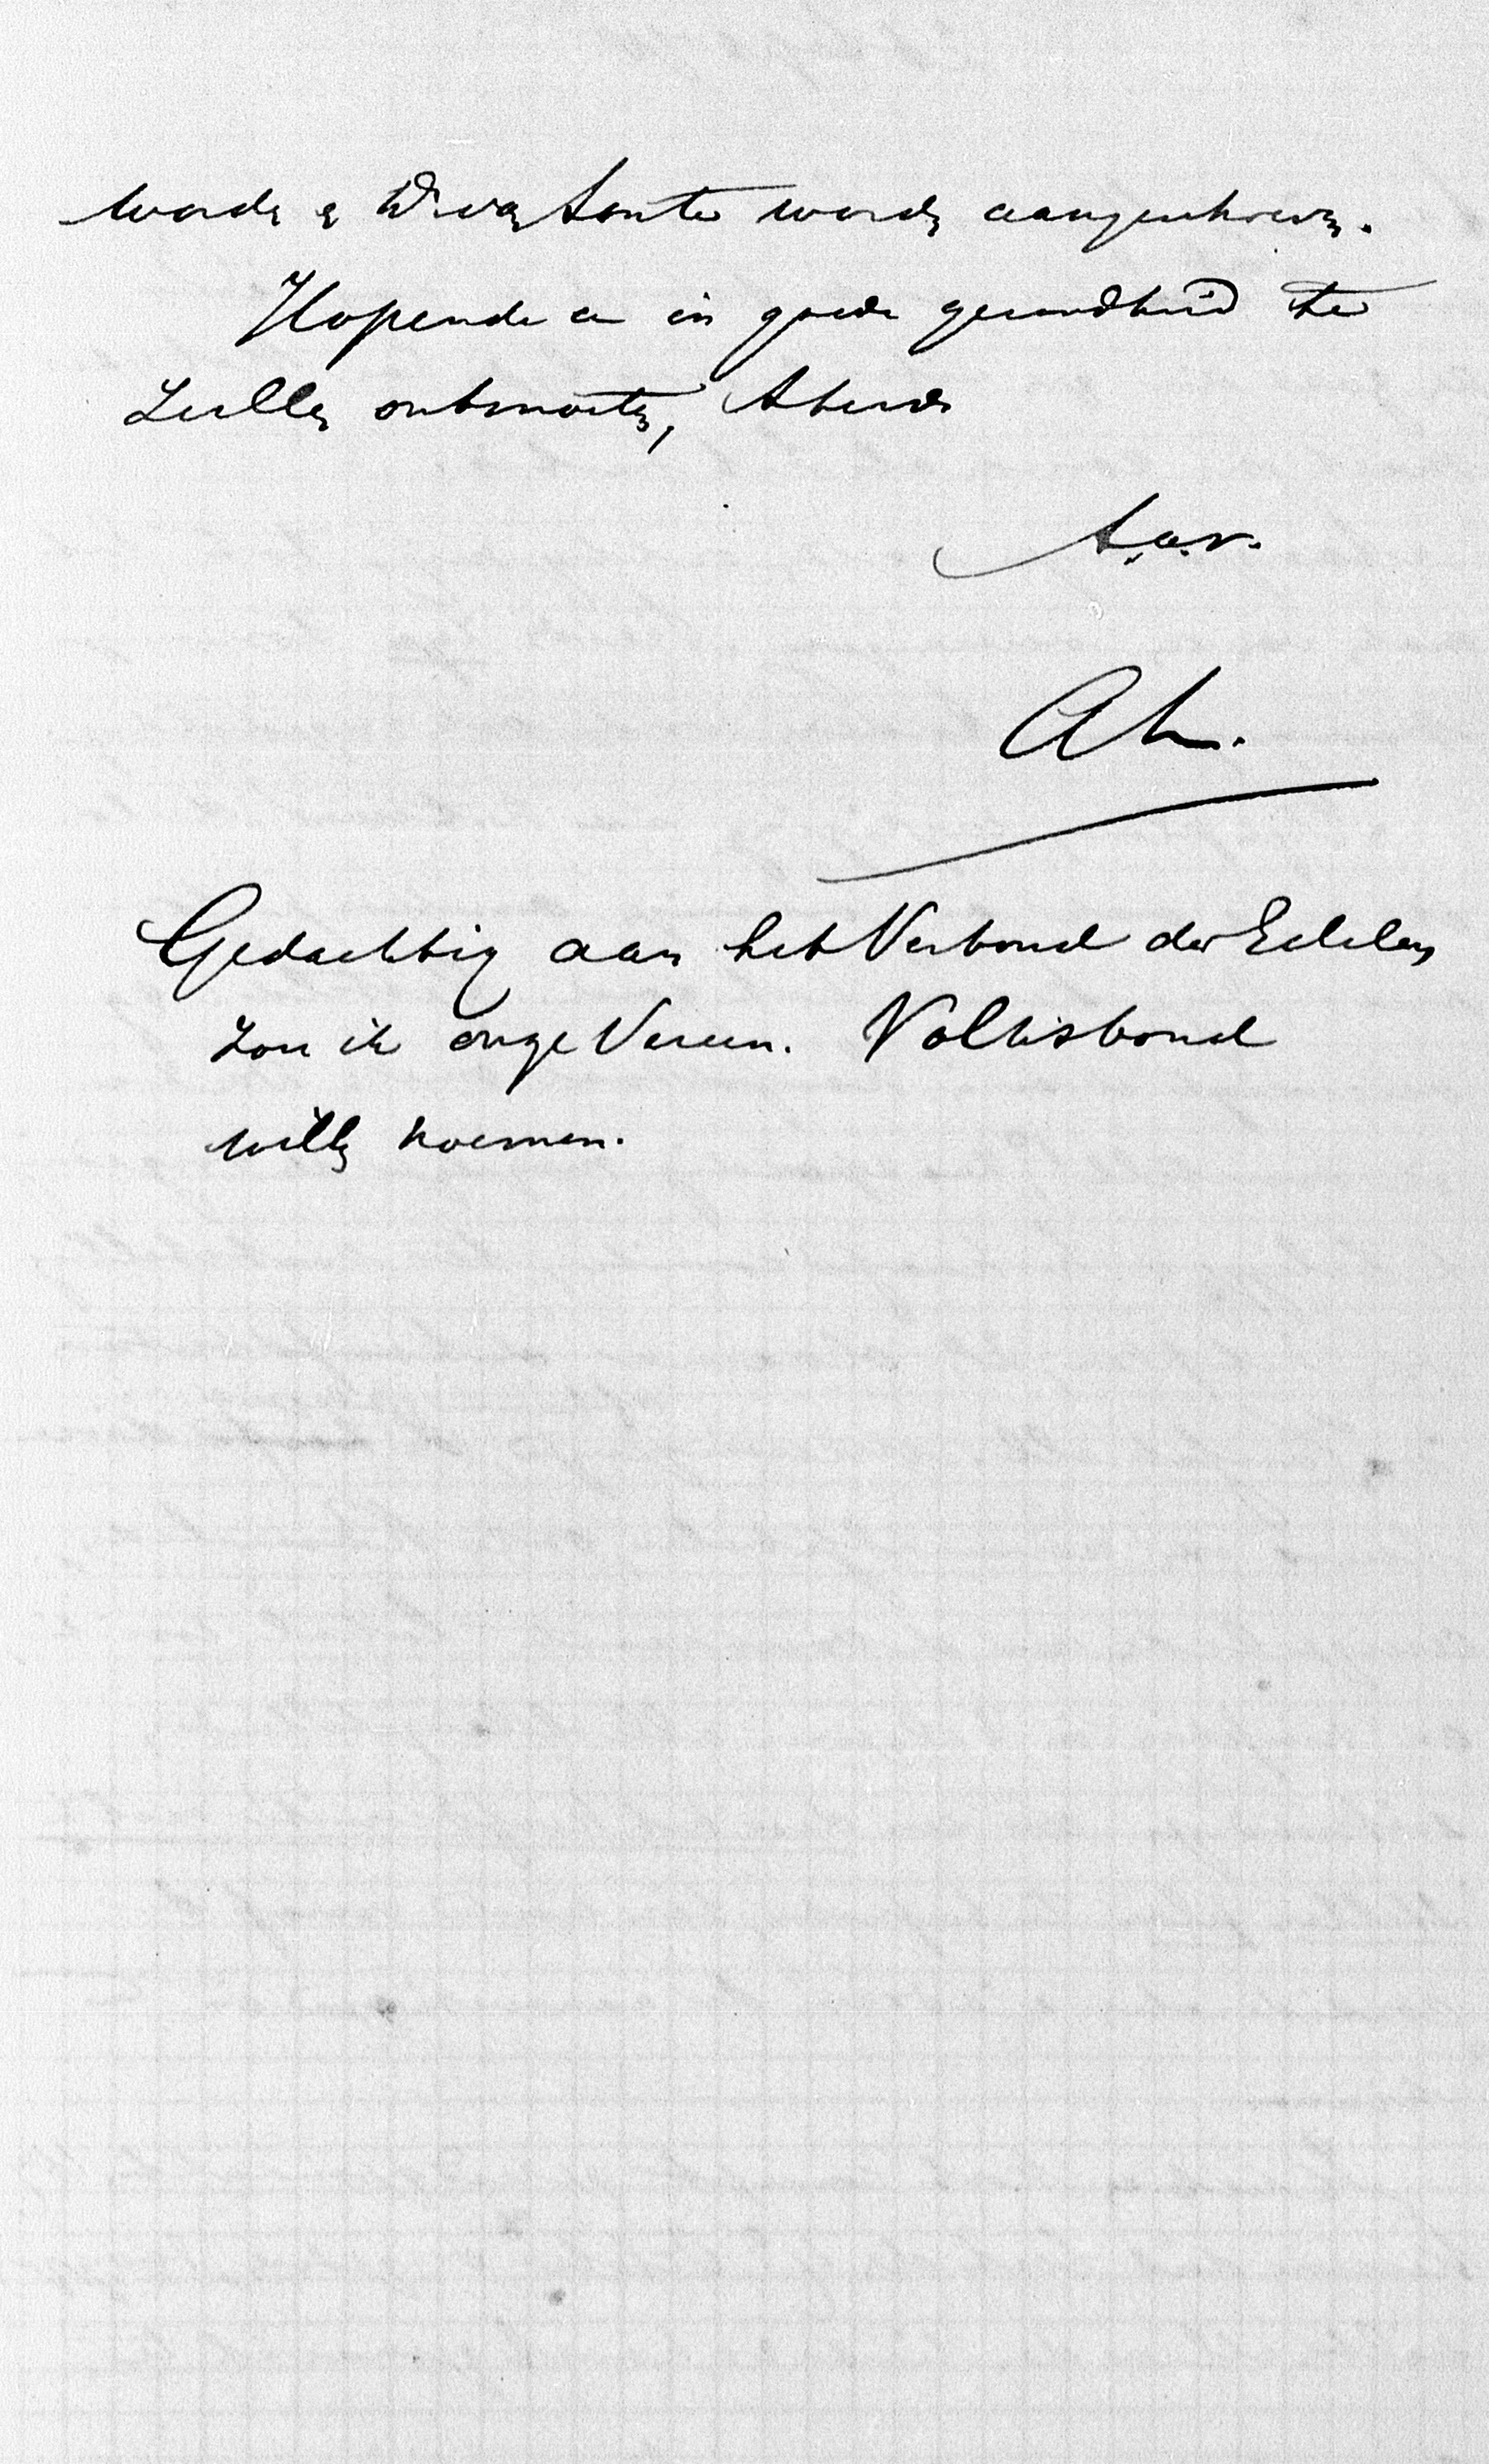 worden & wier sante worden aangenhoeven.
Hopende u in goede gezondheid te
zullen ontmoeten, Steeds
t.a.v.
Ah.
Gedachtig aan het Verbond der Edelen
zou ik onze Vereen. Volksbond
willen noemen.